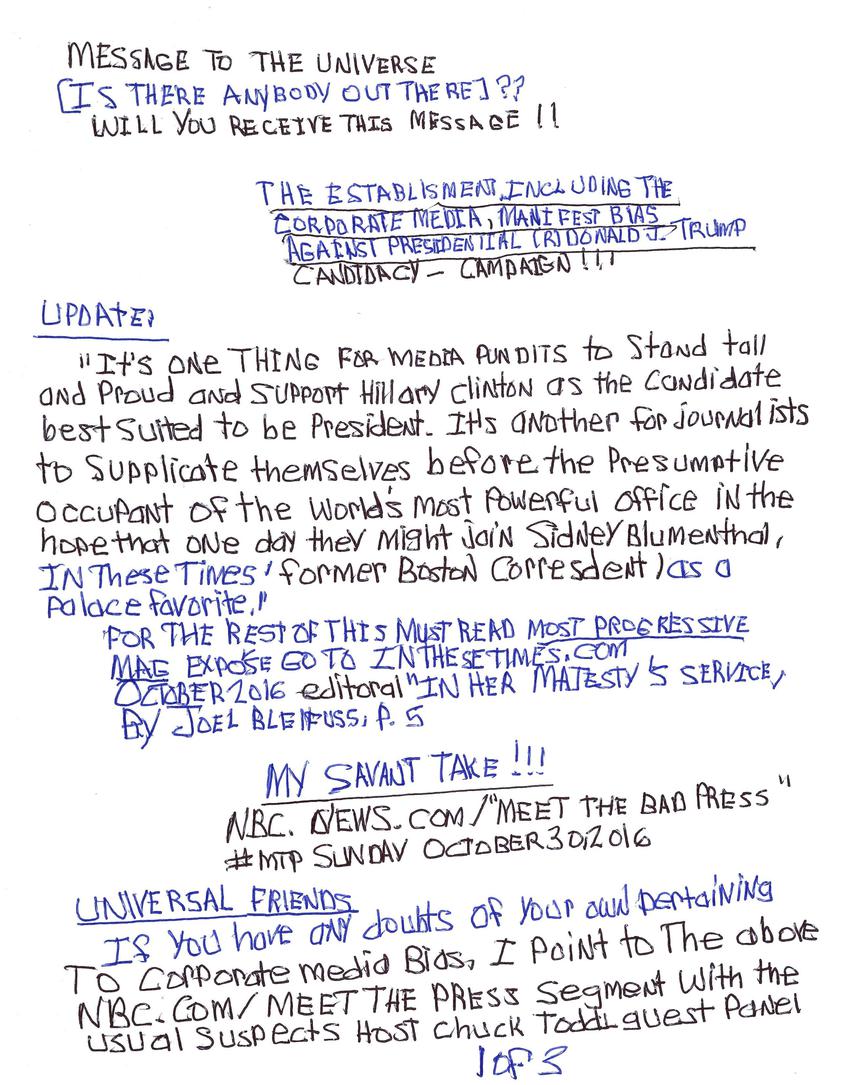 MESSAGE TO THE UNIVERSE
[IS THERE ANYBODY OUT THERE] ??
WILL YOU RECEIVE THIS MESSAGE !!
THE ESTABLISMENT, INCLUDING THE
CORPORATE MEDIA, MANIFEST BIAS
AGAINST PRESIDENTIAL (R) DONALD J. TRUMP
CANDIDACY - CAMPAIGN !!!
UPDATE:
"It's ONE THING FOR MEDIA PUNDITS to Stand tall
and Proud and SUPPORT Hillary Clinton as the Candidate
best suited to be President. It's another for journalists
to Supplicate themselves before the Presumptive
OCCUPANT OF the World's Most Powerful office IN the
hope that ONE day they Might join Sidney Blumenthal,
IN These Times' former Boston Corresdent, as a
Palace favorite."
FOR THE REST OF THIS MUST READ MOST PROGRESSIVE
MAG EXPOSE GO TO INTHESETIMES.COM
OCTOBER 2016 editoral "IN HER MATESTY'S SERVICE,
By JOEL BLEIFUSS, P. 5
MY SAVANT TAKE !!!
NBC. NEWS.COM/"MEET THE BAD PRESS"
#MTP SUNDAY OCTOBER 30,2016
UNIVERSAL FRIENDS
If You have any doubts of Your own pertaining
To Corporate media Bias, I Point to The above
NBC.COM/MEET THE PRESS Segment With the
usual Suspects Host Chuck Todd, guest Panel
1 of 3